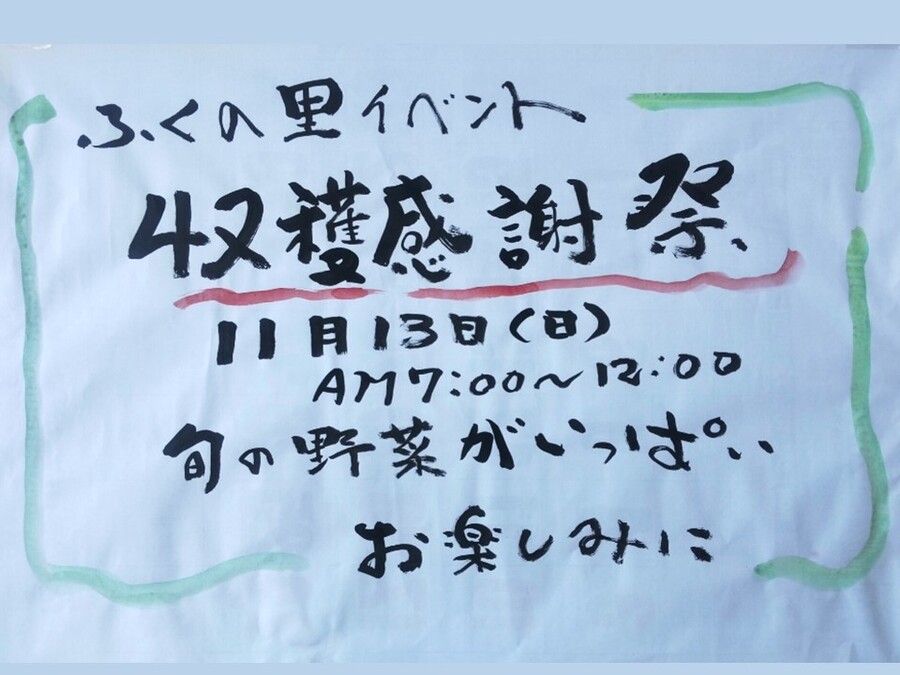 ふくの里イベント
収穫感謝祭
11月13日(日)
AM7:00～12:00
旬の野菜がいっぱい
お楽しみに